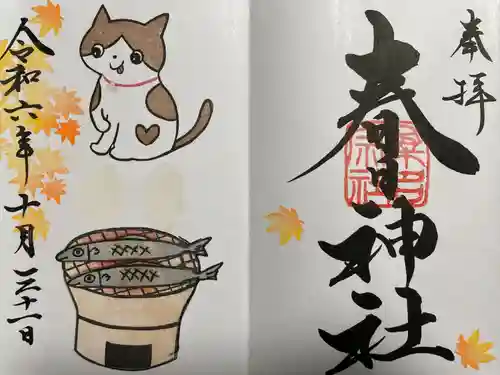 奉拝
春日神社
桑名
宗社
令和六年十月三十一日